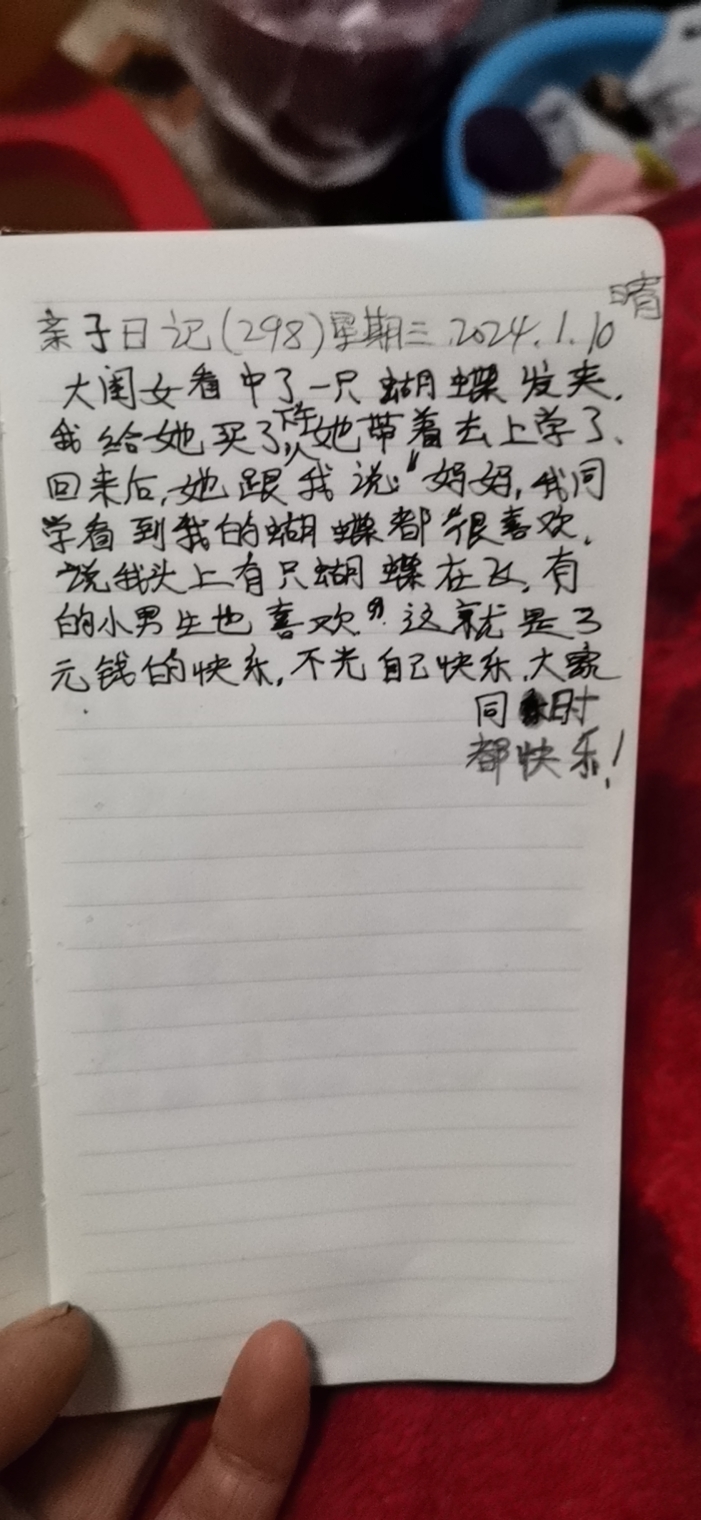 晴
亲子日记(298)星期三 2024.1.10
大闺女看中了一只蝴蝶发夹,
我给她买了,她带着去上学了、
回来后,她跟我说:“妈妈,我同
学看到我的蝴蝶都很喜欢,
说我头上有只蝴蝶在飞,有
的小男生也喜欢”。这就是3
元钱的快乐,不光自己快乐,大家
同时
都快乐!